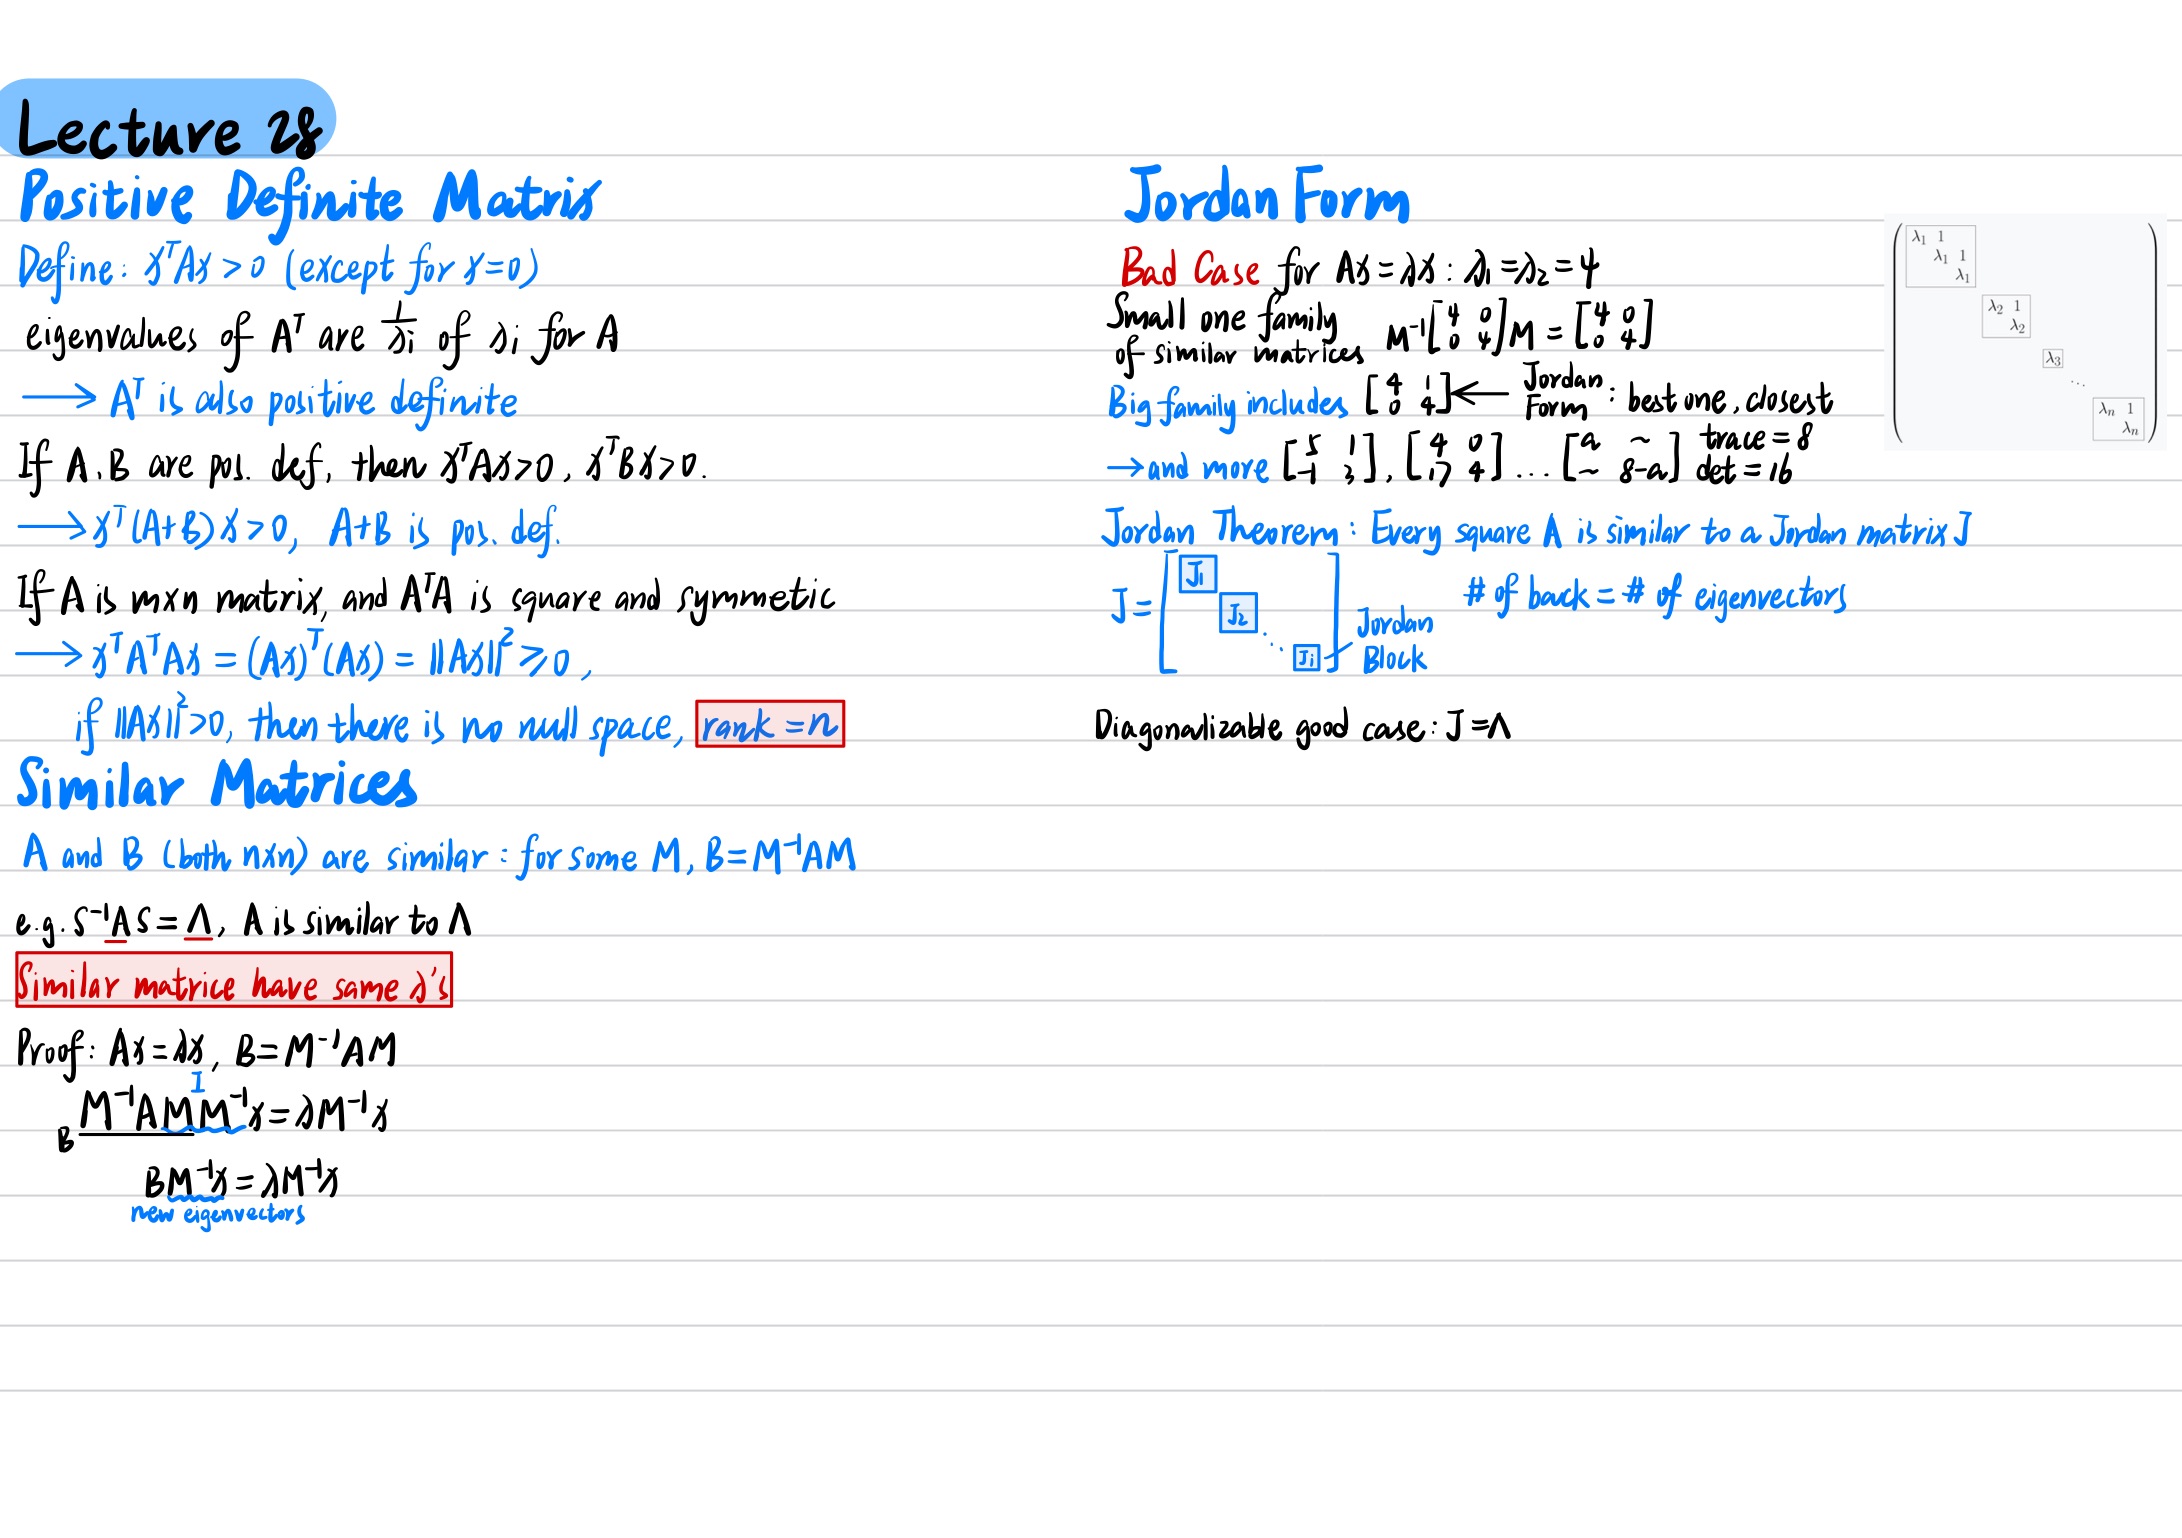 Lecture 28
Positive Definite Matrix
Define: xᵀAx > 0 (except for x=0)
eigenvalues of Aᵀ are 1/λi of λi for A
⟶ Aᵀ is also positive definite
If A, B are pos. def, then xᵀAx>0, xᵀBx>0.
⟶ xᵀ(A+B)x>0, A+B is pos. def.
If A is m×n matrix, and AᵀA is square and symmetic
⟶ xᵀAᵀAx = (Ax)ᵀ(Ax) = ||Ax||² ≥ 0,
if ||Ax||²>0, then there is no null space, rank = n
Similar Matrices
A and B (both n×n) are similar: for some M, B=M⁻¹AM
e.g. S⁻¹AS = Λ, A is similar to Λ
Similar matrice have same λ's
Proof: Ax=λx, B=M⁻¹AM
I
M⁻¹AMM⁻¹x=λM⁻¹x
B
BM⁻¹x=λM⁻¹x
new eigenvectors
Jordan Form
Bad Case for Ax=λx: λ₁=λ₂=4
Small one family of similar matrices M⁻¹[4 0; 0 4]M = [4 0; 0 4]
Big family includes [4 1; 0 4] ⟵ Jordan Form: best one, closest
→ and more [5 1; -1 3], [4 0; 17 4] ... [a ~; ~ 8-a] trace=8 det=16
Jordan Theorem: Every square A is similar to a Jordan matrix J
J = [J₁ J₂ ⋱ Ji] Jordan Block
# of back = # of eigenvectors
Diagonalizable good case: J=Λ
λ₁ 1
λ₁ 1
λ₁
λ₂ 1
λ₂
λ₃
⋱
λₙ 1
λₙ